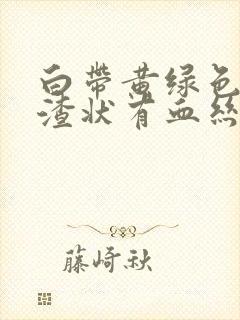 白帶黄绿色
渣状有血絲
藤崎秋